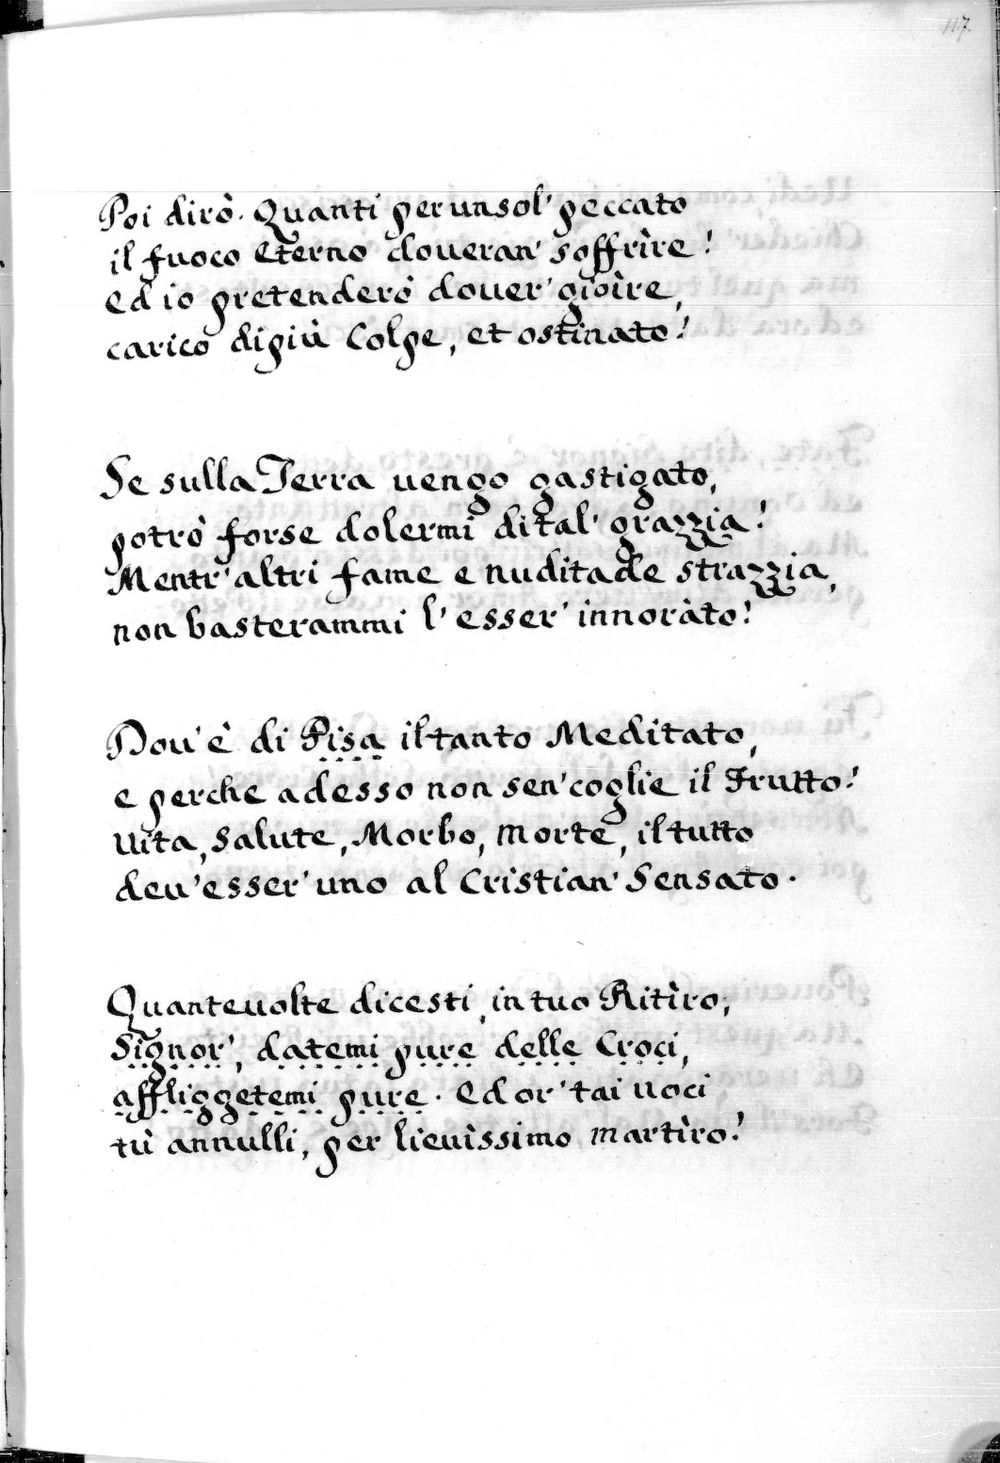 117.
Poi dirò. Quanti per un sol' peccato
il fuoco Eterno doveran' soffrìre!
Ed io pretenderò dover' gioìre,
carico di più Colpe, et ostinato!
Se sulla Terra vengo gastigato,
potrò forse dolermi di tal' grazzia!
Mentr' altri fame e nuditade strazzia,
non basterammi l' esser' innoràto!
Dov' è di Pisa il tanto Meditato,
e perche adesso non sen' coglie il Frutto!
Vita, Salute, Morbo, morte, il tutto
dev' esser' uno al Cristian' Sensato.
Quante volte dicesti, in tuo Ritìro,
Signor', datemi pure delle Croci,
affliggetemi pure. Ed or' tai voci
tù annulli, per lievìssimo martìro!